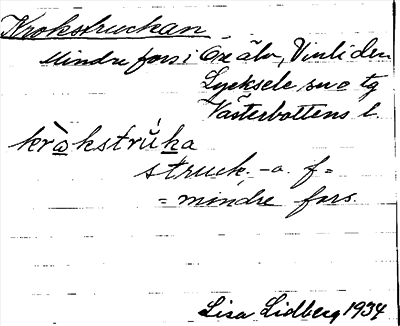 Krokstruckan
Mindre fors i Öre älv, Vinliden
Lycksele sn o tg
Västerbottens l
kròkstrúka
struck, -a. f =
= mindre fors.
Lisa Lidberg 1934